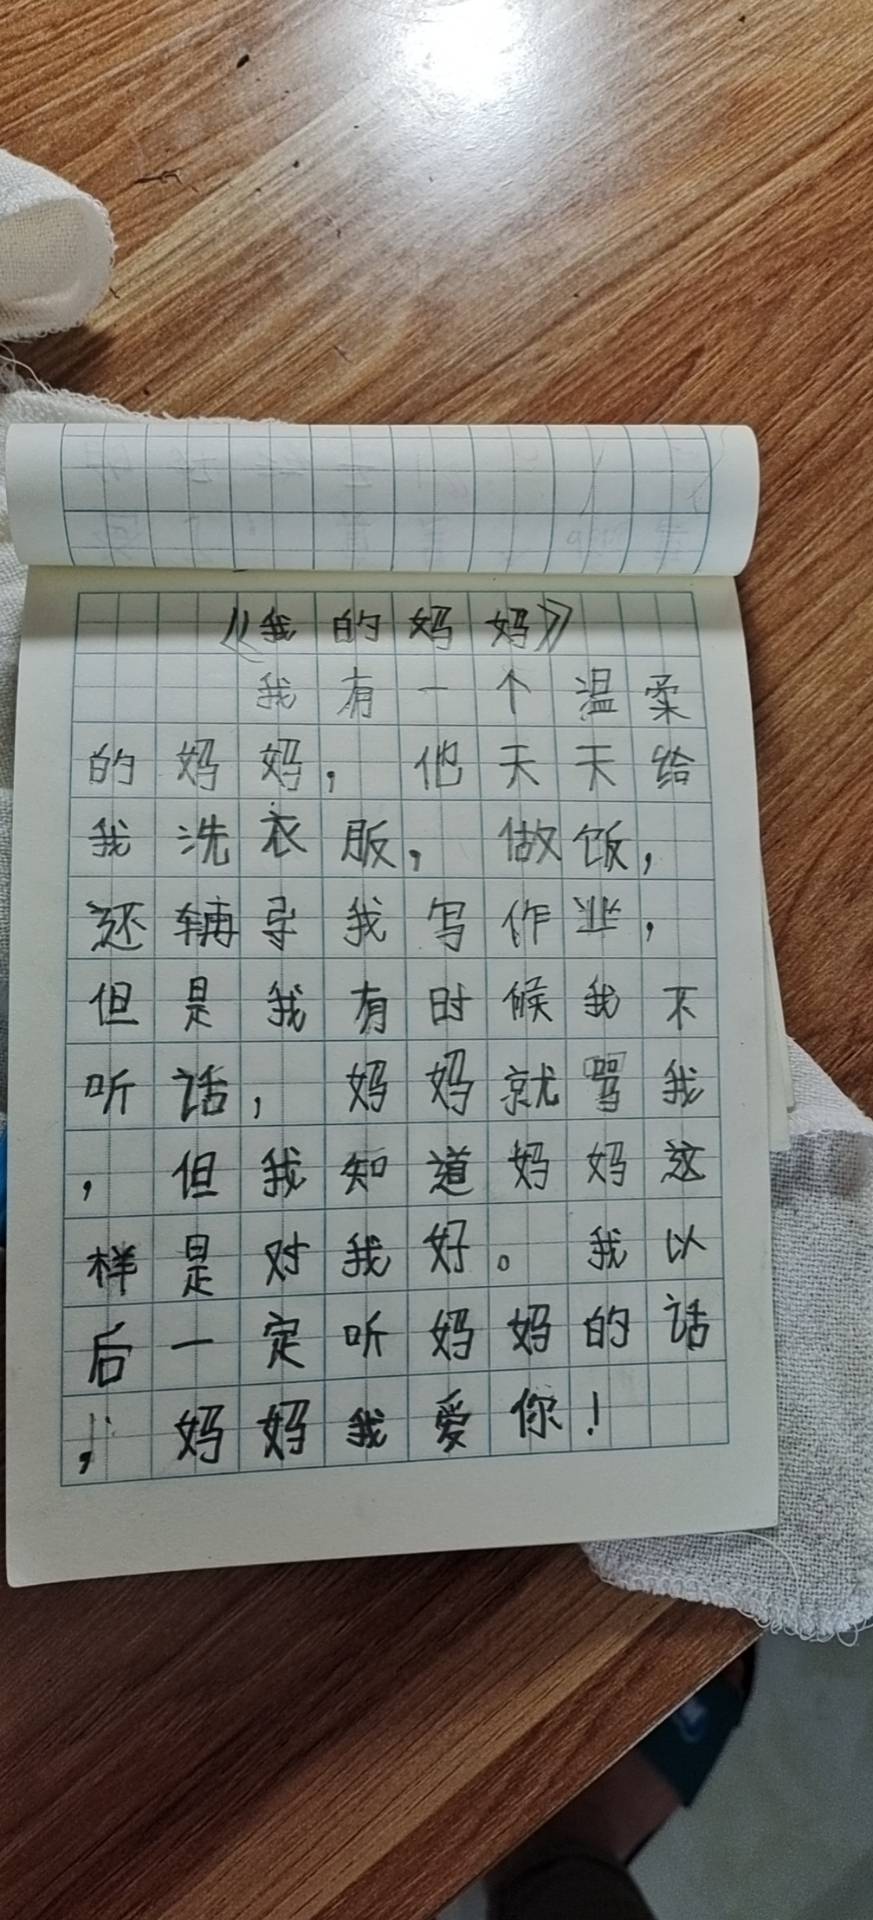 《我的妈妈》
我有一个温柔
的妈妈，他天天给
我洗衣服，做饭，
还辅导我写作业，
但是我有时候我不
听话，妈妈就骂我
，但我知道妈妈这
样是对我好。我以
后一定听妈妈的话
，妈妈我爱你！